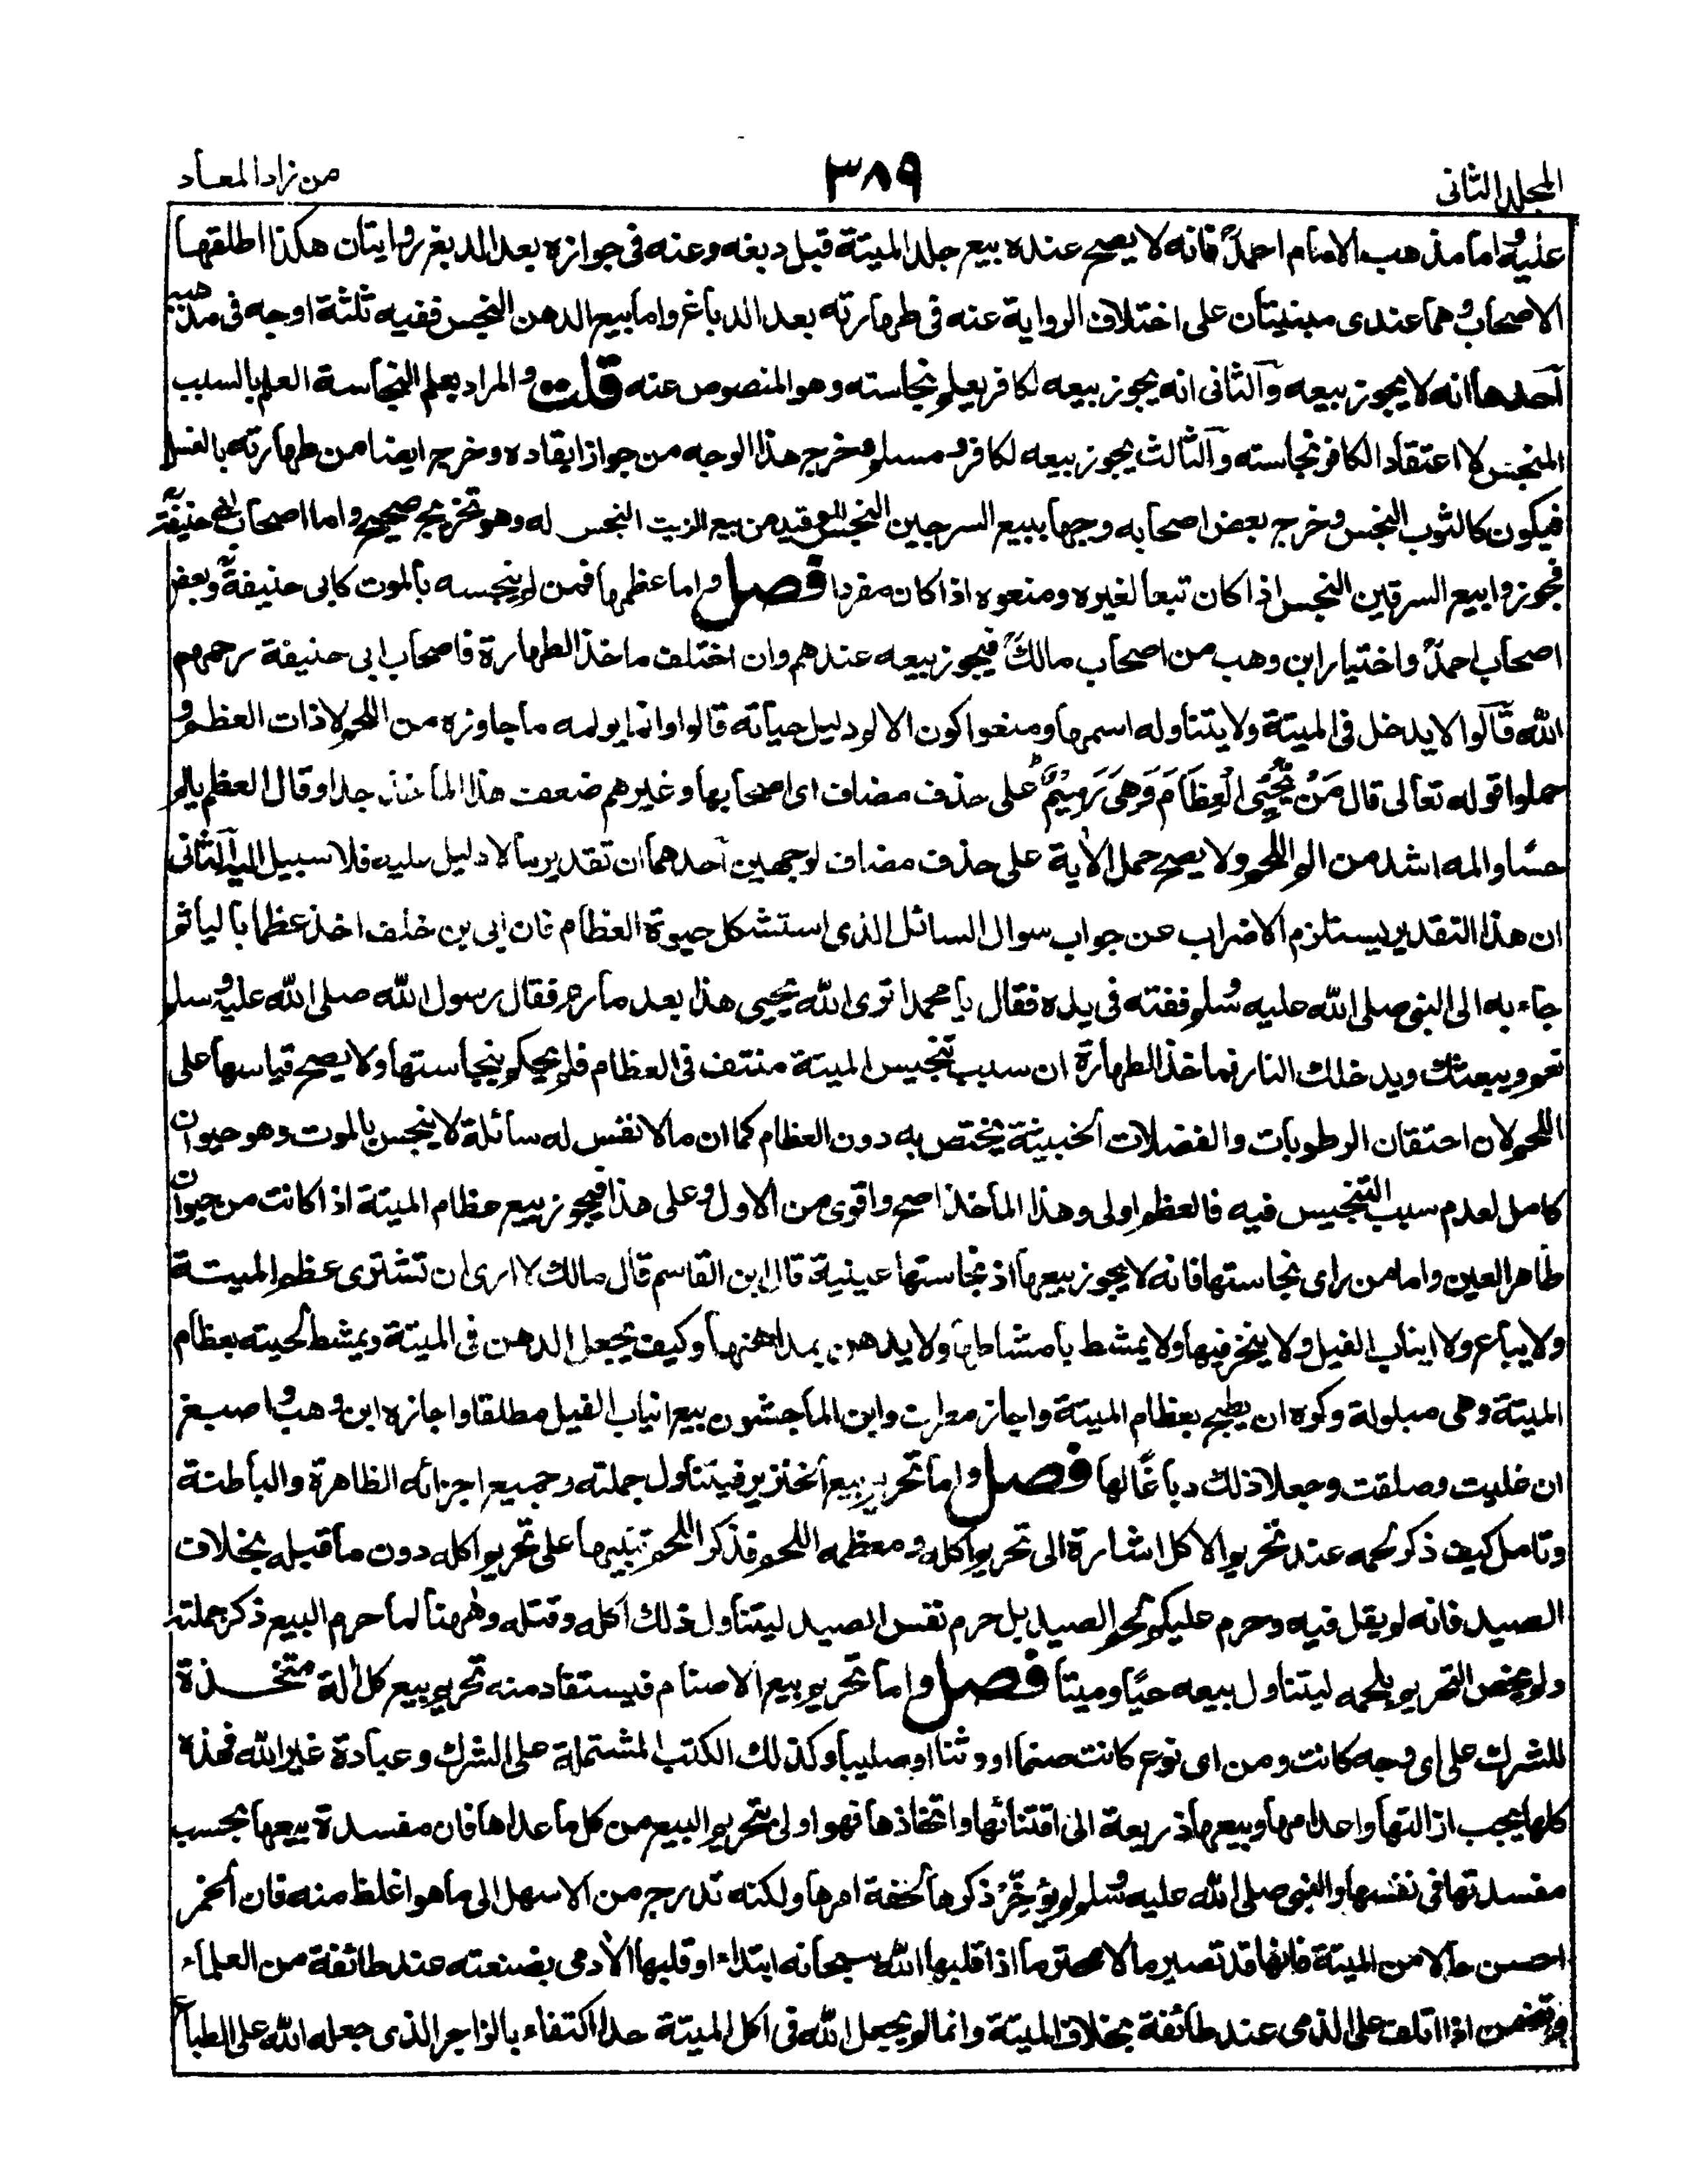 المجلد الثانى
٣٨٩
من زاد المعاد
عليه واما مذهب الامام احمدؒ فانه لا يصح عنده بيع جلد الميتة قبل دبغه وعنه فى جوازه بعد الدبغ روايتان هكذا اطلقها
الاصحاب وهما عندى مبنيتان على اختلاف الرواية عنه فى طهارته بعد الدباغ واما بيع الدهن النجس ففيه ثلثة اوجه فى مذهبه
احدها انه لا يجوز بيعه والثانى انه يجوز بيعه لكافر يعلم نجاسته وهو المنصوص عنه قلت والمراد بعلم النجاسة العلم بالسبب
المنجس لا اعتقاد الكافر نجاسته والثالث يجوز بيعه لكافر ومسلم وخرج هذا الوجه من جواز ايقاده وخرج ايضا من طهارته بالغسل
فيكون كالثوب النجس وخرج بعض اصحابه وجها ببيع السرجين النجس للوقيد من بيع الزيت النجس له وهو تخريج صحيح واما اصحاب ابى حنيفةؒ
فجوزوا بيع السرقين النجس اذا كان تبعا لغيره ومنعوه اذا كان مفردا فصل واما عظمها فمن لم ينجسه بالموت كابى حنيفةؒ وبعض
اصحاب احمدؒ واختيار ابن وهب من اصحاب مالكؒ فيجوز بيعه عندهم وان اختلف ماخذ الطهارة فاصحاب ابى حنيفة رحمهم
الله قالوا لا يدخل فى الميتة ولا يتناوله اسمها ومنعوا كون الالم دليل حياته قالوا وانما يولمه ما جاوزه من اللحم لا ذات العظم و
حملوا قوله تعالى قال مَنْ يُّحْيِى الْعِظَامَ وَهِىَ رَمِيْمٌ على حذف مضاف اى اصحابها وغيرهم ضعف هذا المأخذ جدا وقال العظم يالم
حسًا والمه اشد من الم اللحم ولا يصح حمل الآية على حذف مضاف لوجهين احدهما ان تقدير ما لا دليل عليه فلا سبيل اليه الثانى
ان هذا التقدير يستلزم الاضراب عن جواب سوال السائل الذى استشكل حيوة العظام فان ابى بن خلف اخذ عظما باليا ثم
جاء به الى النبى صلى الله عليه وسلم ففته فى يده فقال يا محمد اترى الله يحيى هذا بعد ما رم فقال رسول الله صلى الله عليه وسلم
نعم ويبعثك ويدخلك النار فماخذ الطهارة ان سبب تنجيس الميتة منتف فى العظام فلم يحكم بنجاستها ولا يصح قياسها على
اللحم لان احتقان الرطوبات والفضلات الخبيثة يختص به دون العظام كما ان ما لا نفس له سائلة لا ينجس بالموت وهو حيوان
كامل لعدم سبب التنجيس فيه فالعظم اولى وهذا المأخذ اصح واقوى من الاول وعلى هذا فيجوز بيع عظام الميتة اذا كانت من حيوان
طاهر العين واما من راى نجاستها فانه لا يجوز بيعها اذ نجاستها عينية قال ابن القاسم قال مالك لا ارى ان تشترى عظم الميتة
ولا يباع ولا انياب الفيل ولا يتجر فيها ولا يمشط بامشاطها ولا يدهن بمداهنها وكيف يجعل الدهن فى الميتة ويمشط لحيته بعظام
الميتة وهى مبلولة وكره ان يطبخ بعظام الميتة واجاز مطرف وابن الماجشون بيع انياب الفيل مطلقا واجازه ابن وهب واصبغ
ان غليت وصلقت وجعلا ذلك دباغًا لها فصل واما تحريم بيع الخنزير فيتناول جملته وجميع اجزائه الظاهرة والباطنة
وتامل كيف ذكر لحمه عند تحريم الاكل اشارة الى تحريم اكله ومعظمه اللحم فذكر اللحم تنبيها على تحريم اكله دون ما قبله بخلاف
الصيد فانه لم يقل فيه وحرم عليكم لحم الصيد بل حرم نفس الصيد ليتناول ذلك اكله وقتله وههنا لما حرم البيع ذكر جملته
ولم يخص التحريم بلحمه ليتناول بيعه حيًا وميتا فصل واما تحريم بيع الاصنام فيستفاد منه تحريم بيع كل آلة متخذة
للشرك على اى وجه كانت ومن اى نوع كانت صنما او وثنا او صليبا وكذلك الكتب المشتملة على الشرك وعبادة غير الله فهذه
كلها يجب ازالتها واعدامها وبيعها ذريعة الى اقتنائها واتخاذها فهو اولى بتحريم البيع من كل ما عداها فان مفسدة بيعها بحسب
مفسدتها فى نفسها والنبى صلى الله عليه وسلم لم يؤخِّر ذكرها لخفة امرها ولكنه تدرج من الاسهل الى ما هو اغلظ منه فان الخمر
احسن حالا من الميتة فانها قد تصير مالا محترما اذا قلبها الله سبحانه ابتداء او قلبها الآدمى بصنعته عند طائفة من العلماء
وتضمن اذا اتلفت على الذمى عند طائفة بخلاف الميتة وانما لم يجعل الله فى اكل الميتة حدا اكتفاء بالزاجر الذى جعله الله على الطباع